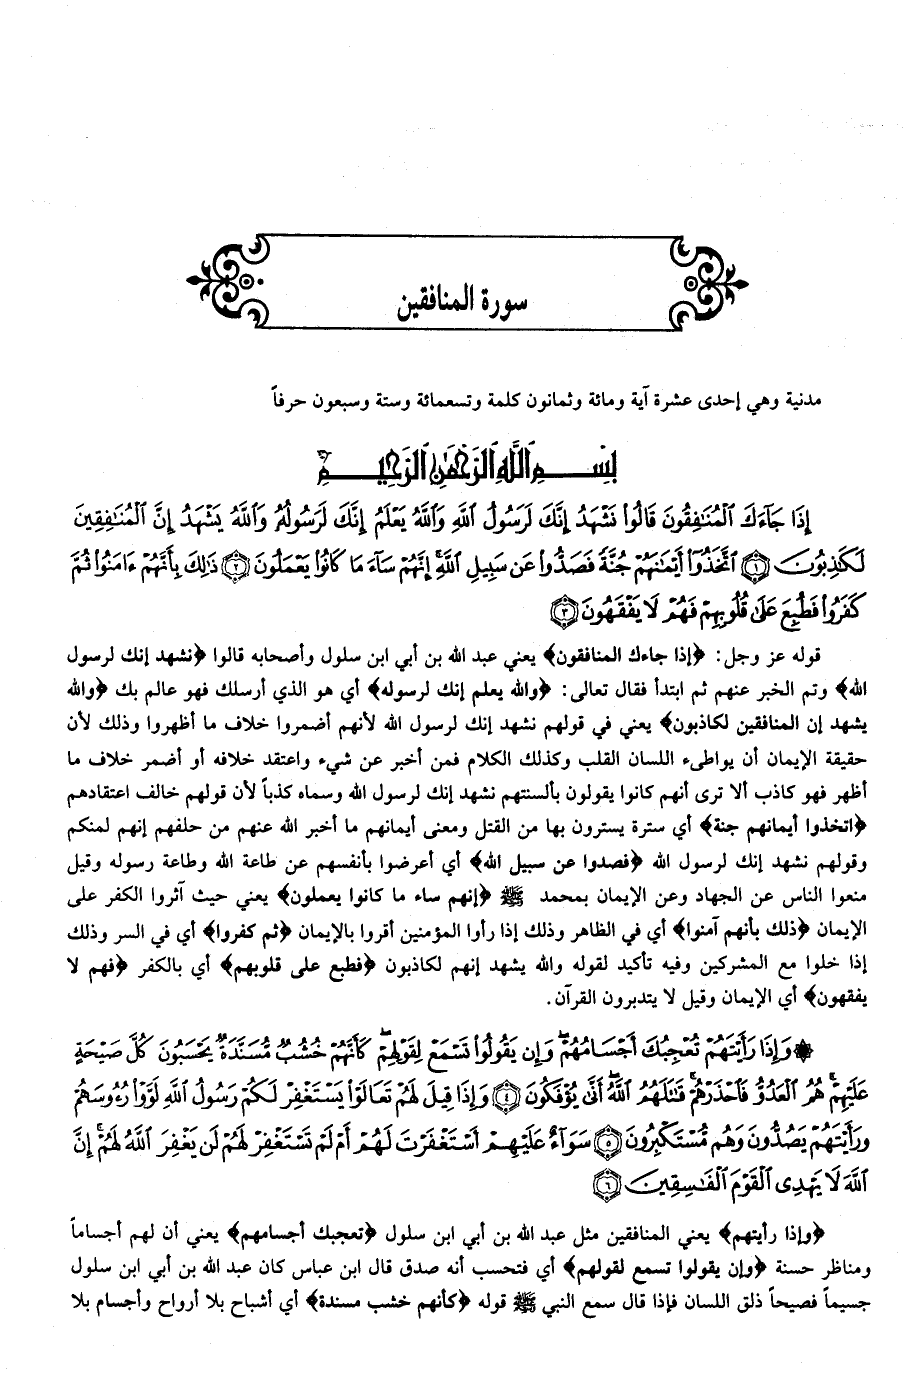 سورة المنافقين
مدنية وهي إحدى عشرة آية ومائة وثمانون كلمة وتسعمائة وستة وسبعون حرفاً
بِسْمِ اللَّهِ الرَّحْمَٰنِ الرَّحِيمِ
إِذَا جَآءَكَ ٱلْمُنَٰفِقُونَ قَالُوا۟ نَشْهَدُ إِنَّكَ لَرَسُولُ ٱللَّهِ وَٱللَّهُ يَعْلَمُ إِنَّكَ لَرَسُولُهُۥ وَٱللَّهُ يَشْهَدُ إِنَّ ٱلْمُنَٰفِقِينَ
لَكَٰذِبُونَ ﴿١﴾ ٱتَّخَذُوٓا۟ أَيْمَٰنَهُمْ جُنَّةً فَصَدُّوا۟ عَن سَبِيلِ ٱللَّهِ إِنَّهُمْ سَآءَ مَا كَانُوا۟ يَعْمَلُونَ ﴿٢﴾ ذَٰلِكَ بِأَنَّهُمْ ءَامَنُوا۟ ثُمَّ
كَفَرُوا۟ فَطُبِعَ عَلَىٰ قُلُوبِهِمْ فَهُمْ لَا يَفْقَهُونَ ﴿٣﴾
قوله عز وجل: ﴿إذا جاءك المنافقون﴾ يعني عبد الله بن أبي ابن سلول وأصحابه قالوا ﴿نشهد إنك لرسول
الله﴾ وتم الخبر عنهم ثم ابتدأ فقال تعالى: ﴿والله يعلم إنك لرسوله﴾ أي هو الذي أرسلك فهو عالم بك ﴿والله
يشهد إن المنافقين لكاذبون﴾ يعني في قولهم نشهد إنك لرسول الله لأنهم أضمروا خلاف ما أظهروا وذلك لأن
حقيقة الإيمان أن يواطىء اللسان القلب وكذلك الكلام فمن أخبر عن شيء واعتقد خلافه أو أضمر خلاف ما
أظهر فهو كاذب ألا ترى أنهم كانوا يقولون بألسنتهم نشهد إنك لرسول الله وسماه كذباً لأن قولهم خالف اعتقادهم
﴿اتخذوا أيمانهم جنة﴾ أي سترة يسترون بها من القتل ومعنى أيمانهم ما أخبر الله عنهم من حلفهم إنهم لمنكم
وقولهم نشهد إنك لرسول الله ﴿فصدوا عن سبيل الله﴾ أي أعرضوا بأنفسهم عن طاعة الله وطاعة رسوله وقيل
منعوا الناس عن الجهاد وعن الإيمان بمحمد ﷺ ﴿إنهم ساء ما كانوا يعملون﴾ يعني حيث آثروا الكفر على
الإيمان ﴿ذلك بأنهم آمنوا﴾ أي في الظاهر وذلك إذا رأوا المؤمنين أقروا بالإيمان ﴿ثم كفروا﴾ أي في السر وذلك
إذا خلوا مع المشركين وفيه تأكيد لقوله والله يشهد إنهم لكاذبون ﴿فطبع على قلوبهم﴾ أي بالكفر ﴿فهم لا
يفقهون﴾ أي الإيمان وقيل لا يتدبرون القرآن.
۞ وَإِذَا رَأَيْتَهُمْ تُعْجِبُكَ أَجْسَامُهُمْ وَإِن يَقُولُوا۟ تَسْمَعْ لِقَوْلِهِمْ كَأَنَّهُمْ خُشُبٌ مُّسَنَّدَةٌ يَحْسَبُونَ كُلَّ صَيْحَةٍ
عَلَيْهِمْ هُمُ ٱلْعَدُوُّ فَٱحْذَرْهُمْ قَٰتَلَهُمُ ٱللَّهُ أَنَّىٰ يُؤْفَكُونَ ﴿٤﴾ وَإِذَا قِيلَ لَهُمْ تَعَالَوْا۟ يَسْتَغْفِرْ لَكُمْ رَسُولُ ٱللَّهِ لَوَّوْا۟ رُءُوسَهُمْ
وَرَأَيْتَهُمْ يَصُدُّونَ وَهُم مُّسْتَكْبِرُونَ ﴿٥﴾ سَوَآءٌ عَلَيْهِمْ أَسْتَغْفَرْتَ لَهُمْ أَمْ لَمْ تَسْتَغْفِرْ لَهُمْ لَن يَغْفِرَ ٱللَّهُ لَهُمْ إِنَّ
ٱللَّهَ لَا يَهْدِى ٱلْقَوْمَ ٱلْفَٰسِقِينَ ﴿٦﴾
﴿وإذا رأيتهم﴾ يعني المنافقين مثل عبد الله بن أبي ابن سلول ﴿تعجبك أجسامهم﴾ يعني أن لهم أجساماً
ومناظر حسنة ﴿وإن يقولوا تسمع لقولهم﴾ أي فتحسب أنه صدق قال ابن عباس كان عبد الله بن أبي ابن سلول
جسيماً فصيحاً ذلق اللسان فإذا قال سمع النبي ﷺ قوله ﴿كأنهم خشب مسندة﴾ أي أشباح بلا أرواح وأجسام بلا